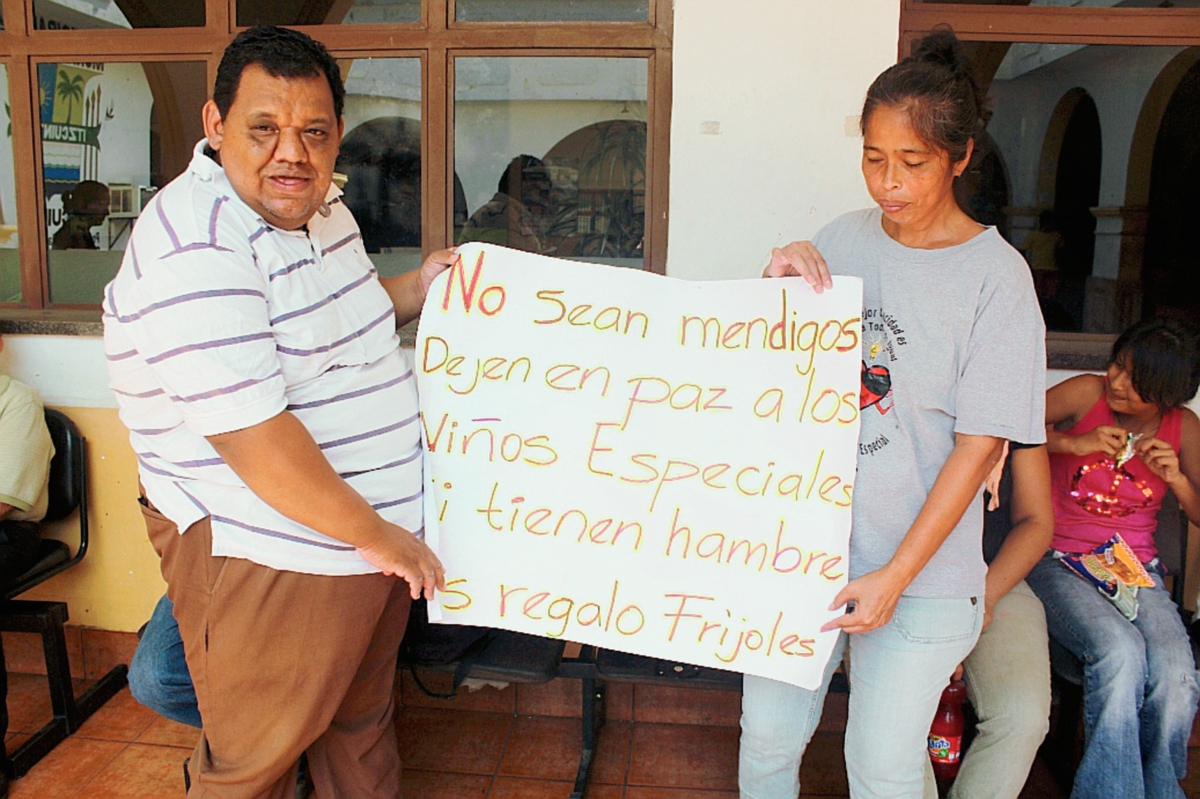 No sean mendigos
Dejen en paz a los
Niños Especiales
i tienen hambre
s regalo Frijoles
ITZCUIN
Especial
Fanta